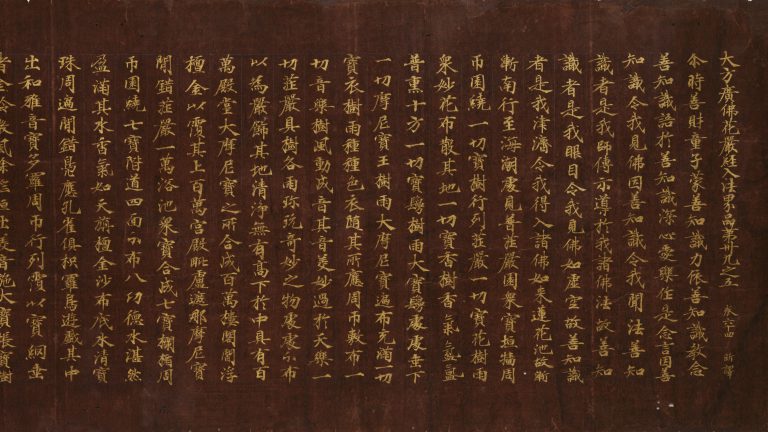 大方廣佛花嚴經入法界品第卅九之五 卷六十四 新譯
尒時善財童子蒙善知識力依善知識教念
善知識語於善知識深心愛樂作是念言因善
知識令我見佛因善知識令我聞法善知
識者是我師傅示導於我諸佛法故善知
識者是我眼目令我見佛如虛空故善知識
者是我津濟令我得入諸佛如來蓮花池故漸
漸南行至海潮處見普莊嚴園衆寶垣牆周
帀圍繞一切寶樹行列莊嚴一切寶花樹雨
衆妙花布散其地一切寶香樹香氣氛氳
普熏十方一切寶鬘樹雨大寶鬘處處垂下
一切摩尼寶王樹雨大摩尼寶遍布充滿一切
寶衣樹雨種種色衣隨其所應周帀敷布一
切音樂樹風動成音其音美妙過於天樂一
切莊嚴具樹各雨珎玩奇妙之物處處分布
以為嚴飾其地清淨無有高下於中具有百
萬殿堂大摩尼寶之所合成百萬樓閣閻浮
檀金以覆其上百萬宮殿毗盧遮那摩尼寶
間錯莊嚴一萬浴池衆寶合成七寶欄楯周
帀圍繞七寶階道四面分布八功德水湛然
盈滿其水香氣如天栴檀金沙布底水清寶
珠周遍間錯鳧鴈孔雀俱枳羅鳥遊戲其中
出和雅音寶多羅周帀行列覆以寶網垂
諸金鈴微風徐搖恒出美音施大寶帳寶樹